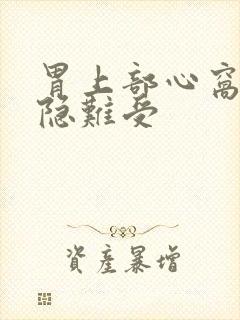 胃上部心窝
隐難受
資產暴增